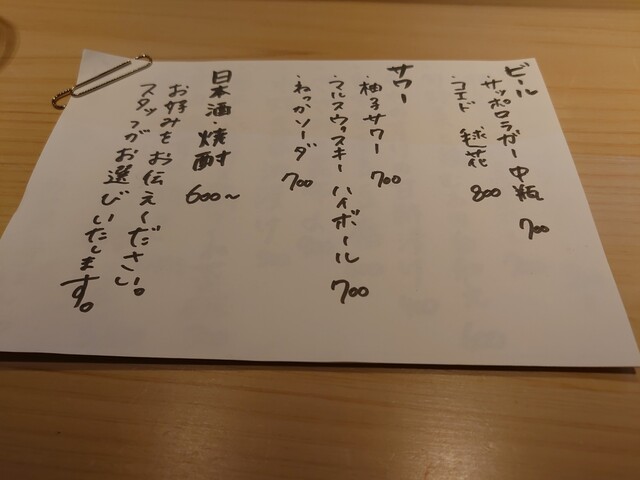 ビール
・サッポロラガー中瓶 700
・コエド 毬花 800
サワー
・柚子サワー 700
・マルスウヰスキーハイボール 700
・ねっかソーダ 700
日本酒 焼酎 600〜
お好みをお伝えください。
スタッフがお選びいたします。